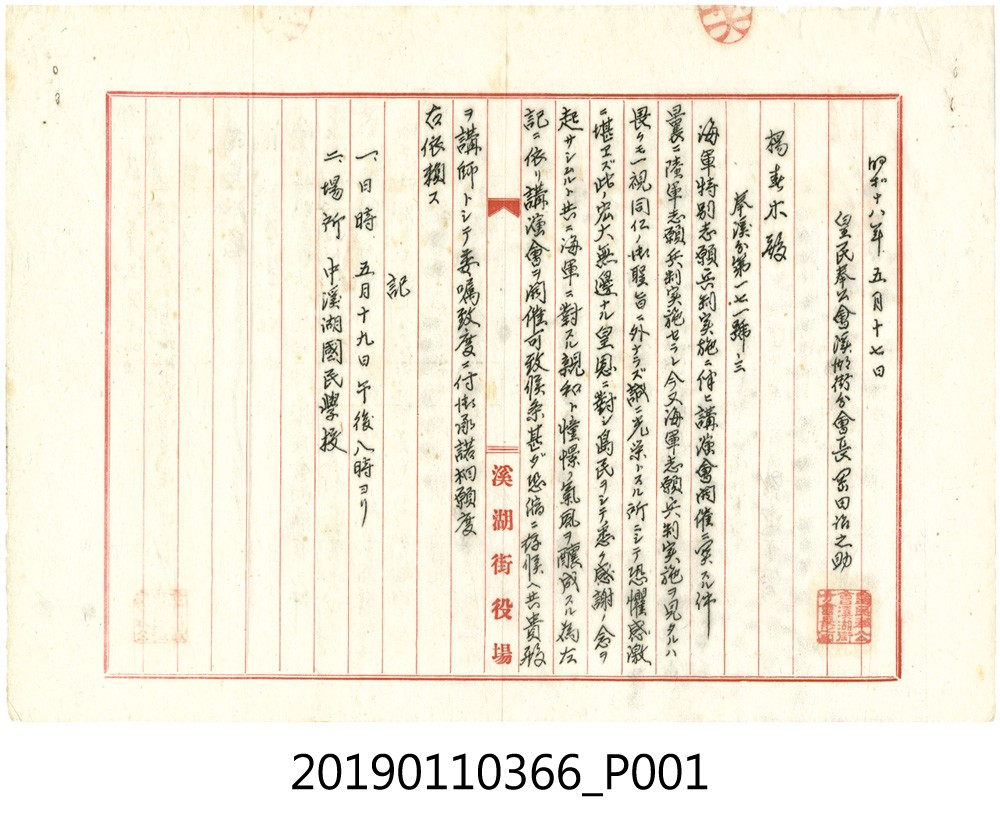 昭和十八年五月十七日
皇民奉公會溪湖街分會長 岡田治之助
楊春木殿
奉溪分第一七一號ノ三
海軍特別志願兵制実施ニ伴ヒ講演會開催ニ関スル件
曩ニ陸軍志願兵制実施セラレ今又海軍志願兵制実施ヲ見タルハ
畏クモ一視同仁ノ御聖旨ニ外ナラズ誠ニ光栄トスル所ニシテ恐懼感激
ニ堪エズ此ノ宏大無邊ナル皇恩ニ對シ島民ヲシテ悉ク感謝ノ念ヲ
起サシムルト共ニ海軍ニ對スル親和ト憧憬ノ氣風ヲ醸成スル為左
記ニ依リ講演會ヲ開催可致候条甚ダ恐縮ニ存候ヘ共貴殿
ヲ講師トシテ委嘱致度ニ付御承諾相願度
右依頼ス
記
一、日時 五月十九日午後八時ヨリ
二、場所 中溪湖國民學校
溪湖街役場
20190110366_P001